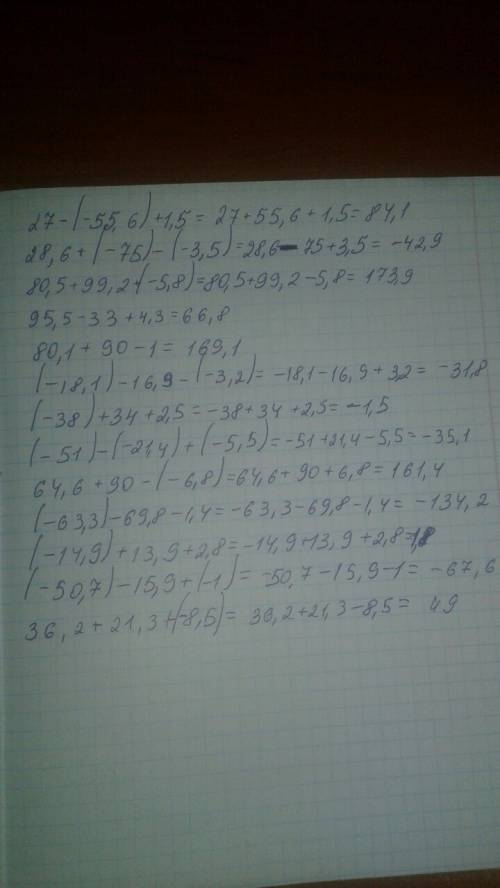 27-(-55,6)+1,5=27+55,6+1,5=84,1
28,6+(-75)-(-3,5)=28,6-75+3,5=-42,9
80,5+99,2+(-5,8)=80,5+99,2-5,8=173,9
95,5-33+4,3=66,8
80,1+90-1=169,1
(-18,1)-16,9-(-3,2)=-18,1-16,9+3,2=-31,8
(-38)+34+2,5=-38+34+2,5=-1,5
(-51)-(-21,4)+(-5,5)=-51+21,4-5,5=-35,1
64,6+90-(-6,8)=64,6+90+6,8=161,4
(-63,3)-69,8-1,4=-63,3-69,8-1,4=-134,2
(-14,9)+13,9+2,8=-14,9+13,9+2,8=1,8
(-50,7)-15,9+(-1)=-50,7-15,9-1=-67,6
36,2+21,3+(-8,5)=36,2+21,3-8,5=49